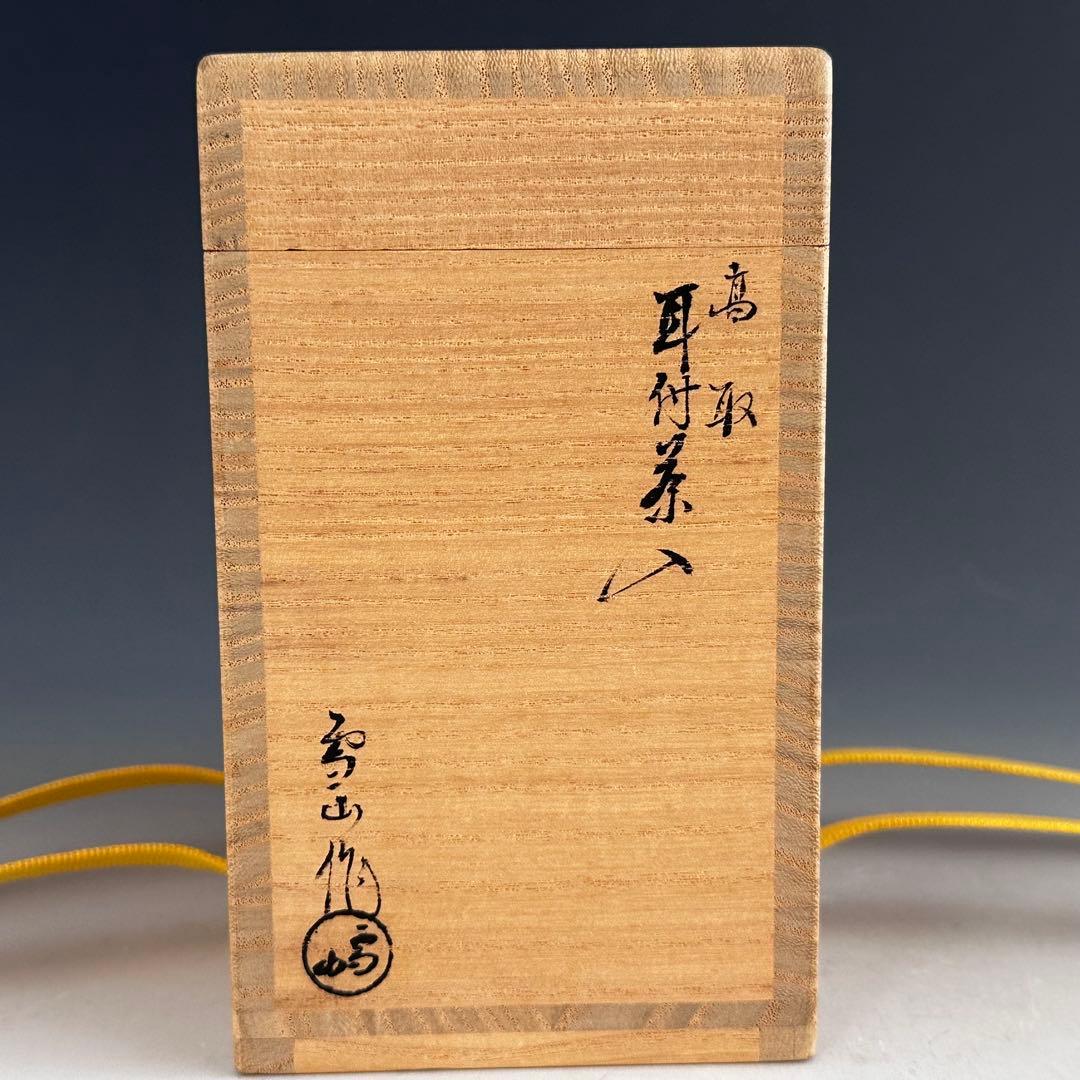 高取
耳付茶入
雪山作